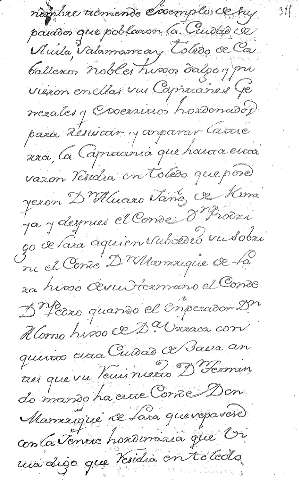 nombre teniendo exemplos de hy
pasados que poblaron la Ciudad de
Avila Salamanca y Toledo de Ca
balleros nobles hijosdalgo y pu
sieron en ellas sus Capitanes Ge
nerales y exercicios hordenados
para Resistir y amparar la tie
rra, la Capitania que hauia en
razon Residia en toledo que
yeron Dn Aluaro
ya y despues el Conde Dn Rodri
go de Lara a quien subcedio su sobri
no el Conde Dn Manrrique de La
ra hijo de su Hermano el Conde
Dn Pedro quando el emperador Dn
Alonso hijo de Da Vrraca con
quisto esta Ciudad de Baeza an
tes que su Dn Fernan
do mando ha este Conde Don
Manrrique de Lara que
con la hordinaria que
digo que Residia en toledo